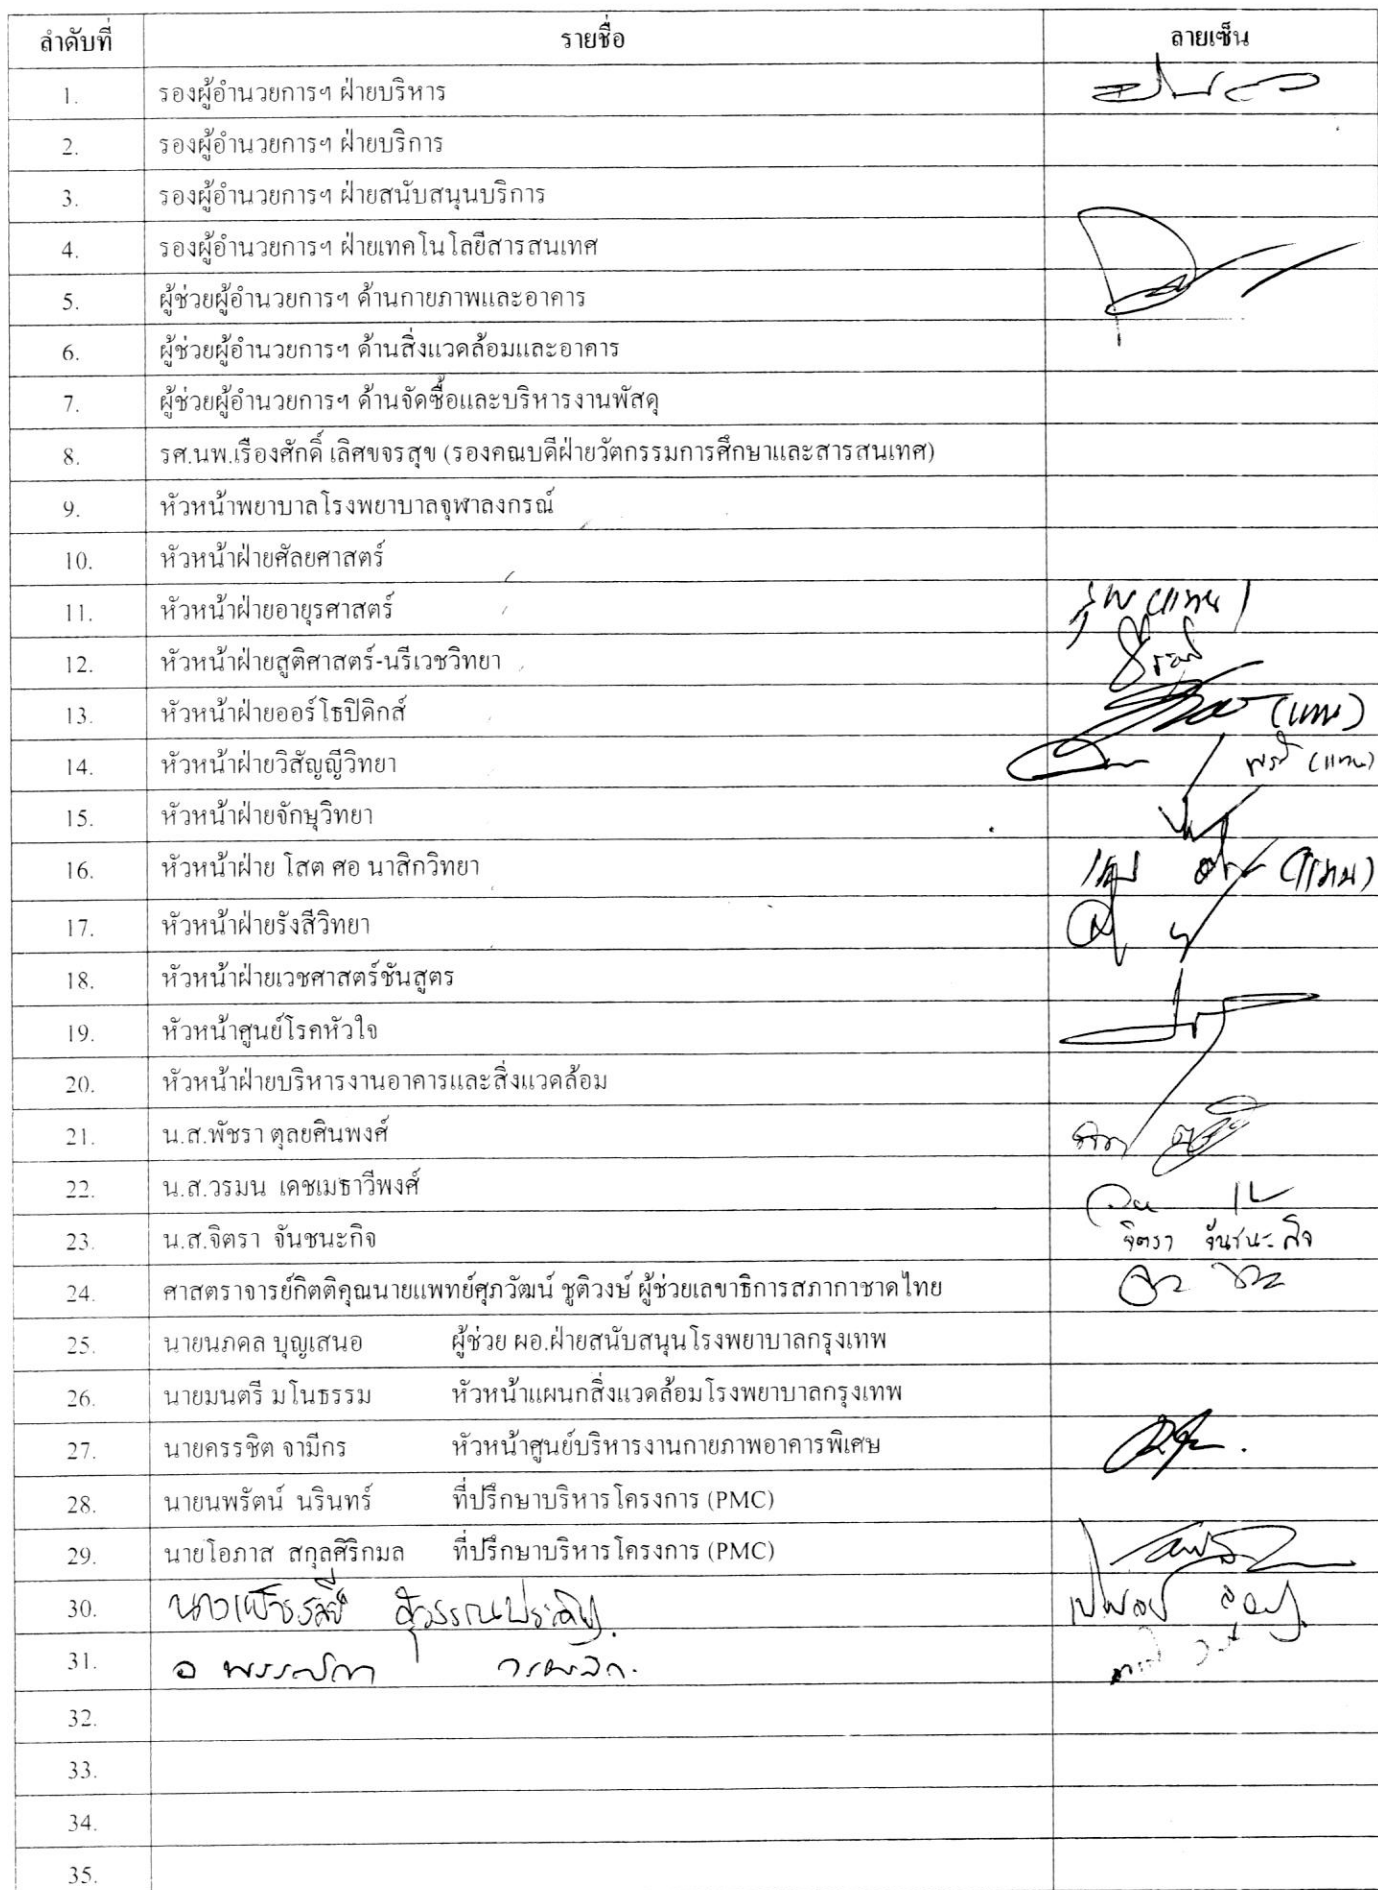 ลำดับที่ รายชื่อ ลายเซ็น
1. รองผู้อำนวยการฯ ฝ่ายบริหาร
2. รองผู้อำนวยการฯ ฝ่ายบริการ
3. รองผู้อำนวยการฯ ฝ่ายสนับสนุนบริการ
4. รองผู้อำนวยการฯ ฝ่ายเทคโนโลยีสารสนเทศ
5. ผู้ช่วยผู้อำนวยการฯ ด้านกายภาพและอาคาร
6. ผู้ช่วยผู้อำนวยการฯ ด้านสิ่งแวดล้อมและอาคาร
7. ผู้ช่วยผู้อำนวยการฯ ด้านจัดซื้อและบริหารงานพัสดุ
8. รศ.นพ.เรืองศักดิ์ เลิศขจรสุข (รองคณบดีฝ่ายวัตกรรมการศึกษาและสารสนเทศ)
9. หัวหน้าพยาบาลโรงพยาบาลจุฬาลงกรณ์
10. หัวหน้าฝ่ายศัลยศาสตร์
11. หัวหน้าฝ่ายอายุรศาสตร์ (แทน)
12. หัวหน้าฝ่ายสูติศาสตร์-นรีเวชวิทยา
13. หัวหน้าฝ่ายออร์โธปิดิกส์ (แทน)
14. หัวหน้าฝ่ายวิสัญญีวิทยา (แทน)
15. หัวหน้าฝ่ายจักษุวิทยา
16. หัวหน้าฝ่าย โสต ศอ นาสิกวิทยา (แทน)
17. หัวหน้าฝ่ายรังสีวิทยา
18. หัวหน้าฝ่ายเวชศาสตร์ชันสูตร
19. หัวหน้าศูนย์โรคหัวใจ
20. หัวหน้าฝ่ายบริหารงานอาคารและสิ่งแวดล้อม
21. น.ส.พัชรา ตุลยศินพงศ์
22. น.ส.วรมน เดชเมธาวีพงศ์
23. น.ส.จิตรา จันชนะกิจ จิตรา จันชนะกิจ
24. ศาสตราจารย์กิตติคุณนายแพทย์ศุภวัฒน์ ชูติวงษ์ ผู้ช่วยเลขาธิการสภากาชาดไทย
25. นายนภดล บุญเสนอ ผู้ช่วย ผอ.ฝ่ายสนับสนุนโรงพยาบาลกรุงเทพ
26. นายมนตรี มโนธรรม หัวหน้าแผนกสิ่งแวดล้อมโรงพยาบาลกรุงเทพ
27. นายครรชิต จามีกร หัวหน้าศูนย์บริหารงานกายภาพอาคารพิเศษ
28. นายนพรัตน์ นรินทร์ ที่ปรึกษาบริหารโครงการ (PMC)
29. นายโอภาส สกุลศิริกมล ที่ปรึกษาบริหารโครงการ (PMC)
30. สุวรรณประดิษฐ์
31.
32.
33.
34.
35.